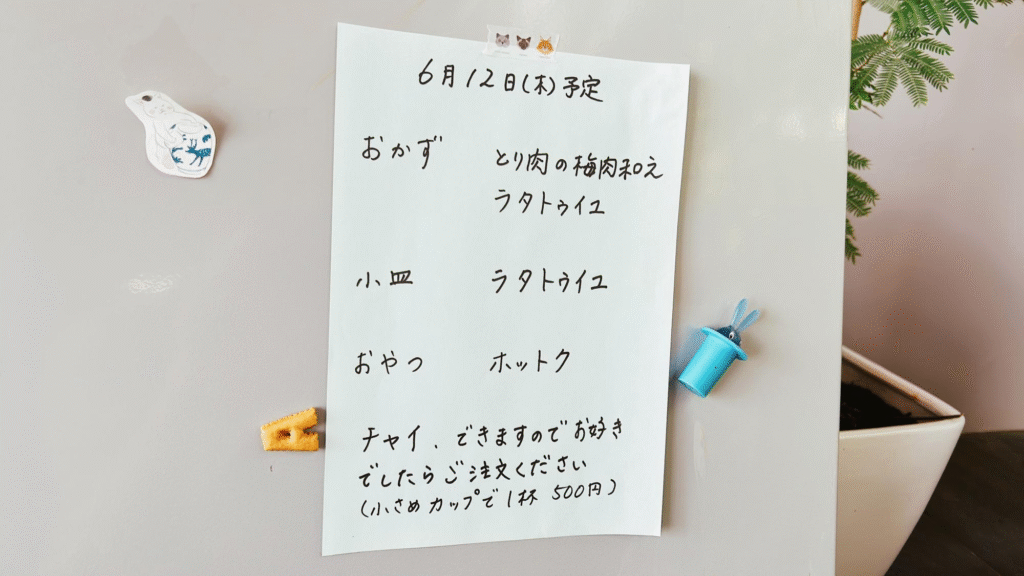 6月12日(木)予定
おかず とり肉の梅肉和え
ラタトゥイユ
小皿 ラタトゥイユ
おやつ ホットク
チャイ、できますのでお好き
でしたらご注文ください
(小さめカップで1杯 500円)